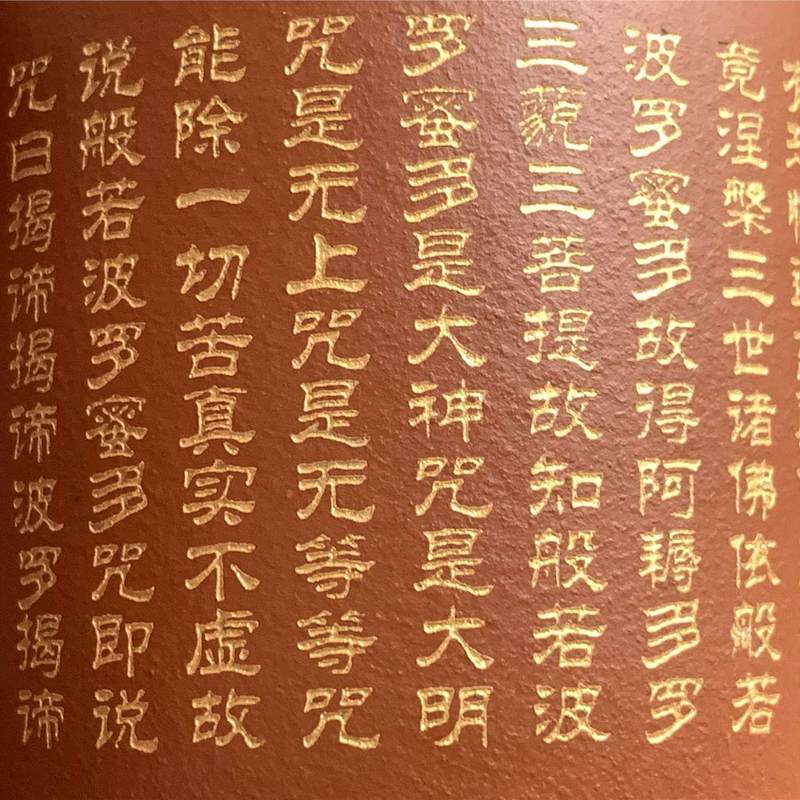 竟涅槃三世诸佛依般若
波罗蜜多故得阿耨多罗
三藐三菩提故知般若波
罗蜜多是大神咒是大明
咒是无上咒是无等等咒
能除一切苦真实不虚故
说般若波罗蜜多咒即说
咒曰揭谛揭谛波罗揭谛